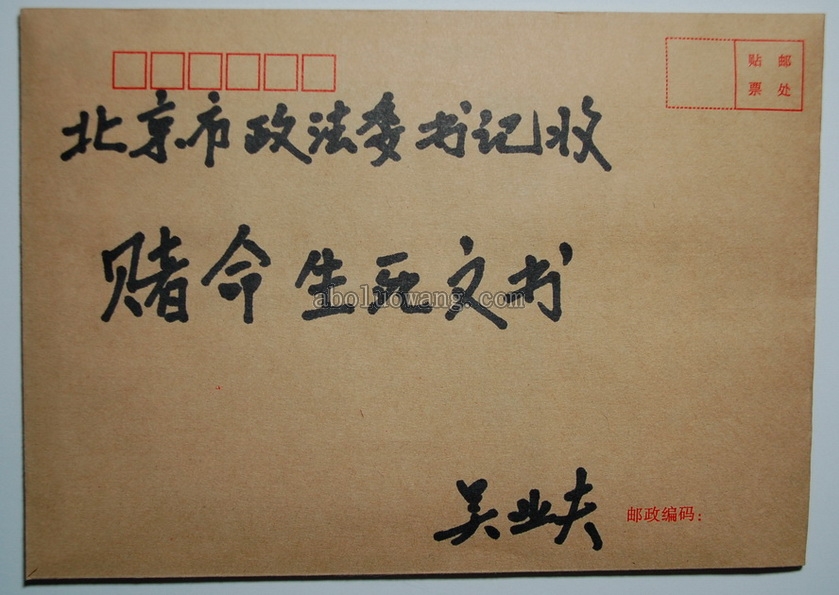 贴 邮
票 处
北京市政法委书记收
赌命生死文书
aboluowang.com
吴业夫
邮政编码：